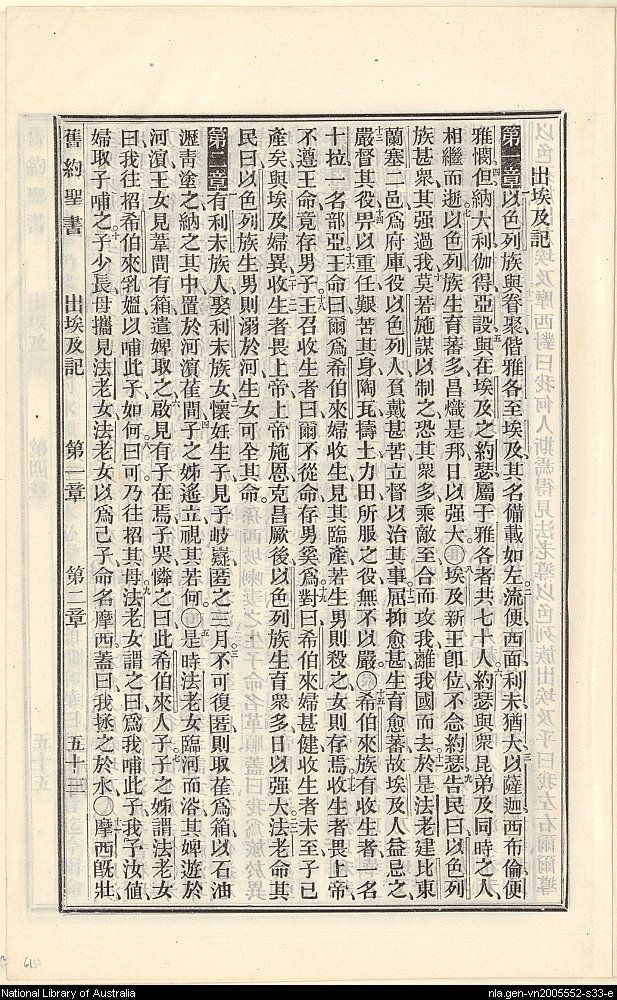 出埃及記
第一章 以色列族與眷聚偕雅各至埃及其名備載如左。流便西面利未猶大以薩迦西布倫便
雅憫但納大利伽得亞設與在埃及之約瑟屬于雅各者共七十人約瑟與衆昆弟及同時之人
相繼而逝以色列族生育蕃多昌熾是邦日以强大〇埃及新王卽位不念約瑟告民曰以色列
族甚衆其强過我莫若施謀以制之恐其衆多乘敵至合而攻我離我國而去於是法老建比東
蘭塞二邑爲府庫役以色列人負戴甚苦立督以治其事屈抑愈甚生育愈蕃故埃及人益忌之
嚴督其役畀以重任艱苦其身陶瓦擣土力田所服之役無不以嚴〇希伯來族有收生者一名
十拉一名部亞王命曰爾爲希伯來婦收生見其臨產若生男則殺之女則存焉收生者畏上帝
不遵王命竟存男子王召收生者曰爾不從命存男奚爲對曰希伯來婦甚健收生者未至子已
產矣與埃及婦異收生者畏上帝上帝施恩克昌厥後以色列族生育衆多日以强大法老命其
民曰以色列族生男則溺於河生女可全其命。
第二章 有利未族人娶利未族女懷妊生子見子岐嶷匿之三月不可復匿則取萑爲箱以石油
瀝青塗之納之其中置於河濱萑間子之姊遙立視其若何〇是時法老女臨河而浴其婢遊於
河濱王女見葦間有箱遣婢取之啟見有子在焉子哭憐之曰此希伯來人子子之姊謂法老女
曰我往招希伯來乳媼以哺此子如何曰可乃往招其母法老女謂之曰爲我哺此子我予汝値
婦取子哺之子少長母攜見法老女法老女以爲己子命名摩西蓋曰我拯之於水〇摩西旣壯
舊約聖書 出埃及記 第一章 第二章 五十三
National Library of Australia
nla.gen-vn2005552-s33-e